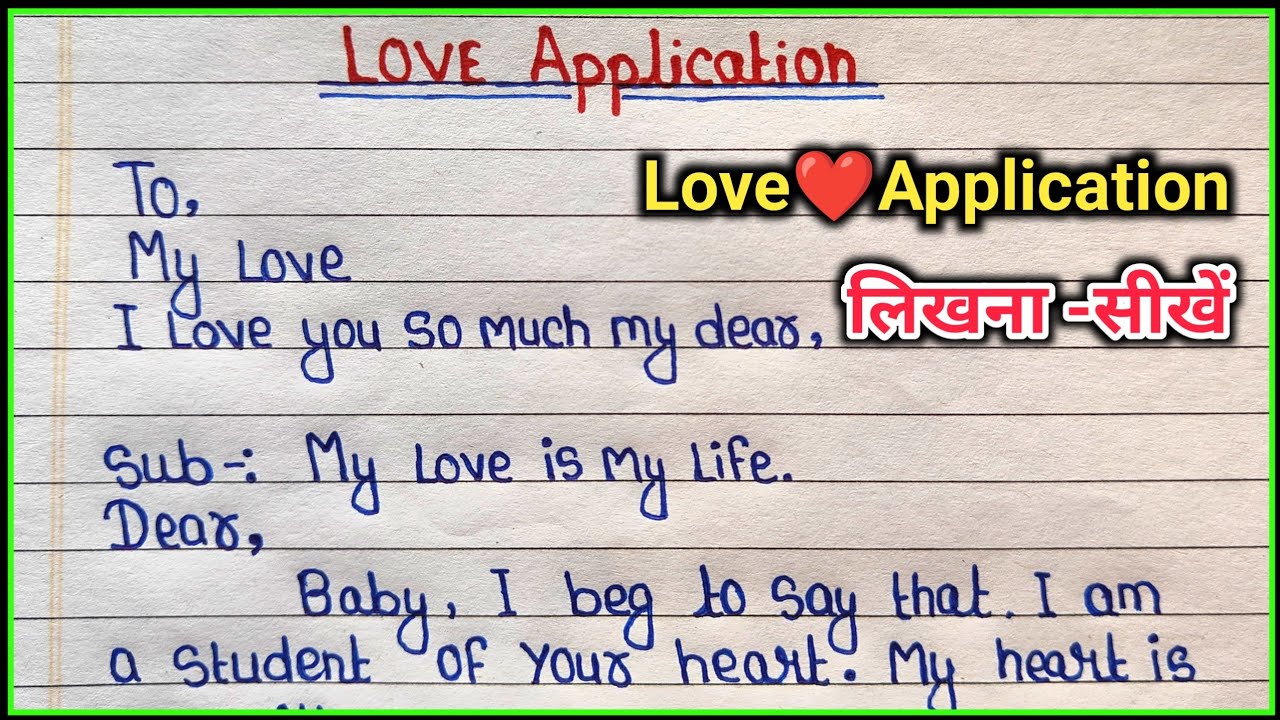 LOVE Application
Love❤️Application
To,
My Love
लिखना -सीखें
I Love you so much my dear,
Sub-: My Love is my Life.
Dear,
Baby, I beg to say that. I am
a student of your heart. My heart is